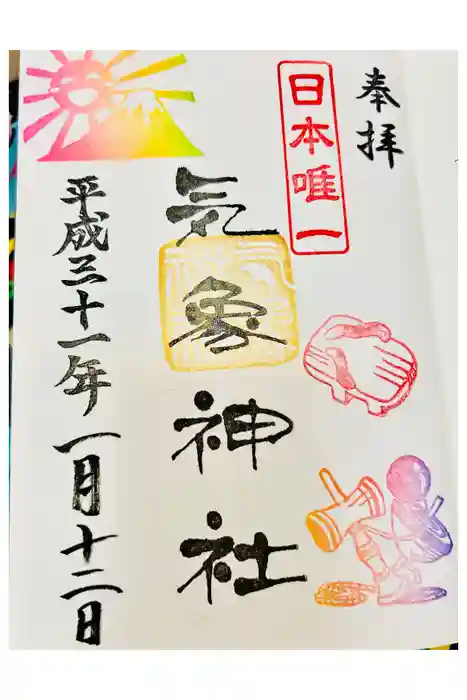 奉拝
日本唯一
気象神社
平成三十一年一月十二日